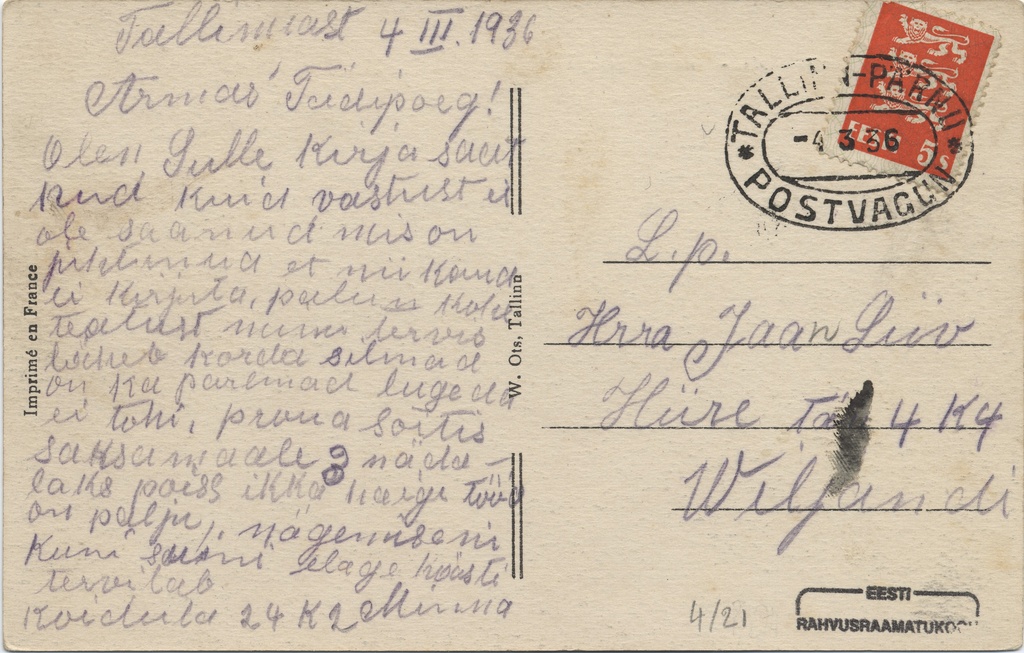 Tallinnast 4 III. 1936
Armas Tädipoeg!
Olen Sulle Kirja saat
nud kuid vastust ei
ole saanud mis on
juhtunud et nii kaua
ei kirjuta, palun kohe
teatust minu tervis
läheb korda silmad
on ka paremad lugeda
ei tohi, proua sõitis
saksamaale 3 näda-
laks poiss ikka haige tööd
on palju, nägemiseni
kuni elage hästi
tervitab
Koidula 24 K2 Minna
Imprimé en France
W. Ots, Tallinn
TALLINN-PÄRNU
-4 3 36
POSTVAGUN
EESTI 5s
L.p.
Hrra Jaan Siiv
Hiire tän 4 K4
Wiljandi
4/21
EESTI
RAHVUSRAAMATUKOGU